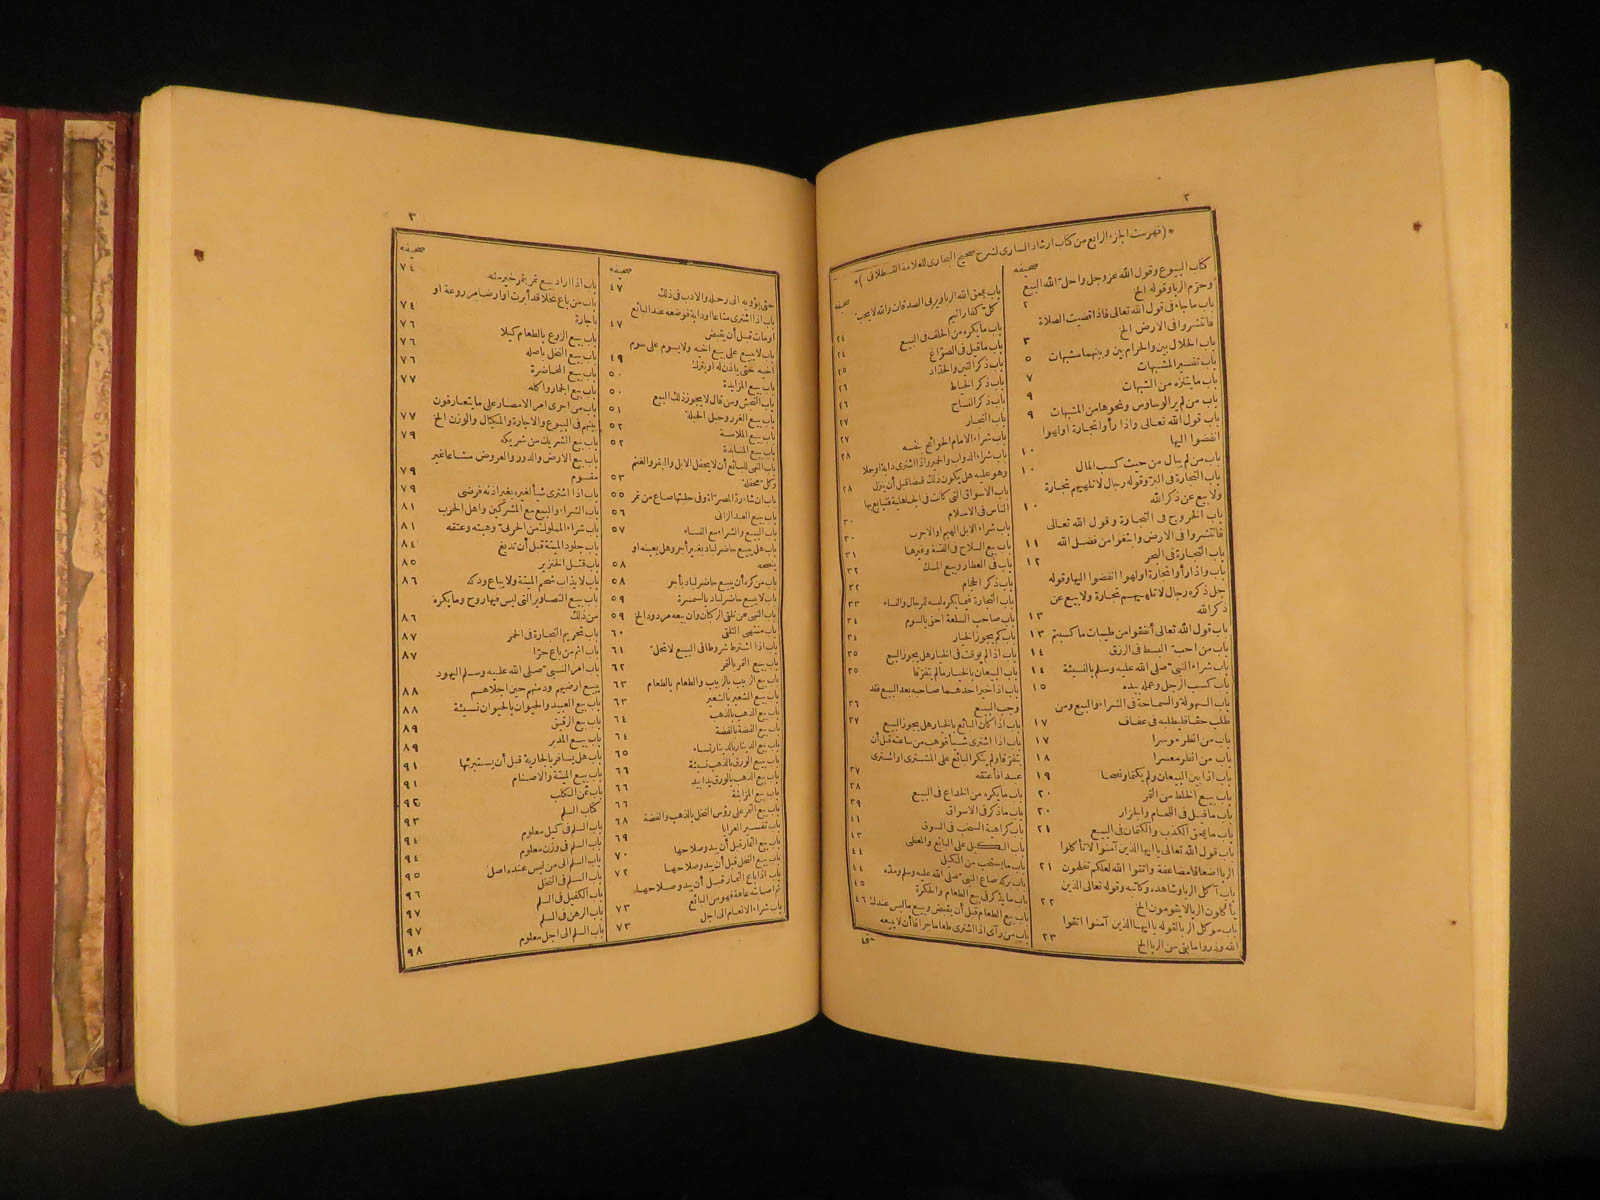 ٢
*(فهرست الجزء الرابع من كتاب ارشاد السارى لشرح صحيح البخارى للعلامة القسطلانى)*
صحيفه
كتاب البيوع وقول الله عز وجل واحل الله البيع
وحرم الربا وقوله الخ ٢
باب ما جاء فى قول الله تعالى فاذا قضيت الصلاة
فانتشروا فى الارض الخ ٣
باب الحلال بين والحرام بين وبينهما مشبهات ٥
باب تفسير المشبهات ٧
باب ما يتنزه من الشبهات ٩
باب من لم ير الوساوس ونحوها من المشبهات ٩
باب قول الله تعالى واذا رأوا تجارة او لهوا
انفضوا اليها ١٠
باب من لم يبال من حيث كسب المال ١٠
باب التجارة فى البر وقوله رجال لا تلهيهم تجارة
ولا بيع عن ذكر الله ١٠
باب الخروج فى التجارة وقول الله تعالى
فانتشروا فى الارض وابتغوا من فضل الله ١١
باب التجارة فى البحر ١٢
باب واذا رأوا تجارة او لهوا انفضوا اليها وقوله
جل ذكره رجال لا تلهيهم تجارة ولا بيع عن
ذكر الله ١٣
باب قول الله تعالى أنفقوا من طيبات ما كسبتم ١٣
باب من احب البسط فى الرزق ١٤
باب شراء النبى صلى الله عليه وسلم بالنسيئة ١٤
باب كسب الرجل وعمله بيده ١٥
باب السهولة والسماحة فى الشراء والبيع ومن
طلب حقا فليطلبه فى عفاف ١٧
باب من انظر موسرا ١٧
باب من انظر معسرا ١٨
باب اذا بين البيعان ولم يكتما ونصحا ١٩
باب بيع الخلط من التمر ٢٠
باب ما قيل فى اللحام والجزار ٢٠
باب ما يمحق الكذب والكتمان فى البيع ٢١
باب قول الله تعالى يا ايها الذين آمنوا لا تأكلوا
الربا اضعافا مضاعفة واتقوا الله لعلكم تفلحون ٢١
باب آكل الربا وشاهده وكاتبه وقوله تعالى الذين
يأكلون الربا لا يقومون الخ ٢٢
باب موكل الربا لقوله يا ايها الذين آمنوا اتقوا
الله وذروا ما بقى من الربا الخ ٢٣
صحيفه
باب يمحق الله الربا ويربى الصدقات والله لا يحب
كل كفار اثيم ٢٤
باب ما يكره من الحلف فى البيع ٢٤
باب ما قيل فى الصواغ ٢٥
باب ذكر القين والحداد ٢٦
باب ذكر الخياط ٢٦
باب ذكر النساج ٢٧
باب النجار ٢٧
باب شراء الامام الحوائج بنفسه ٢٨
باب شراء الدواب والحمير واذا اشترى دابة او جملا
وهو عليه هل يكون ذلك قبضا قبل أن ينزل ٢٨
باب الاسواق التى كانت فى الجاهلية فتبايع بها
الناس فى الاسلام ٣٠
باب شراء الابل الهيم او الاجرب ٣٠
باب بيع السلاح فى الفتنة وغيرها ٣١
باب فى العطار وبيع المسك ٣٢
باب ذكر الحجام ٣٢
باب التجارة فيما يكره لبسه للرجال والنساء ٣٣
باب صاحب السلعة احق بالسوم ٣٤
باب كم يجوز الخيار ٣٤
باب اذا لم يوقت فى الخيار هل يجوز البيع ٣٥
باب البيعان بالخيار ما لم يتفرقا ٣٥
باب اذا خير احدهما صاحبه بعد البيع فقد
وجب البيع ٣٦
باب اذا كان البائع بالخيار هل يجوز البيع ٣٧
باب اذا اشترى شيأ فوهب من ساعته قبل أن
يتفرقا ولم ينكر البائع على المشترى او اشترى
عبدا فأعتقه ٣٧
باب ما يكره من الخداع فى البيع ٣٨
باب ما ذكر فى الاسواق ٣٩
باب كراهية السخب فى السوق ٤١
باب الكيل على البائع والمعطى ٤٣
باب ما يستحب من الكيل ٤٤
باب بركة صاع النبى صلى الله عليه وسلم ومده ٤٤
باب ما يذكر فى بيع الطعام والحكرة ٤٥
باب بيع الطعام قبل أن يقبض وبيع ما ليس عندك ٤٦
باب من رأى اذا اشترى طعاما جزافا أن لا يبيعه
٣
صحيفه
حتى يؤويه الى رحله والادب فى ذلك ٤٧
باب اذا اشترى متاعا او دابة فوضعه عند البائع
او مات قبل أن يقبض ٤٧
باب لا يبيع على بيع اخيه ولا يسوم على سوم
اخيه حتى يأذن له او يترك ٤٩
باب بيع المزايدة ٥٠
باب النجش ومن قال لا يجوز ذلك البيع ٥٠
باب بيع الغرر وحبل الحبلة ٥١
باب بيع الملامسة ٥٢
باب بيع المنابذة ٥٢
باب النهى للبائع أن لا يحفل الابل والبقر والغنم
وكل محفلة ٥٣
باب ان شاء رد المصراة وفى حلبتها صاع من تمر ٥٥
باب بيع العبد الزانى ٥٦
باب البيع والشراء مع النساء ٥٧
باب هل يبيع حاضر لباد بغير أجر وهل يعينه او
ينصحه ٥٨
باب من كره أن يبيع حاضر لباد بأجر ٥٨
باب لا يبيع حاضر لباد بالسمسرة ٥٩
باب النهى عن تلقى الركبان وان بيعه مردود الخ ٥٩
باب منتهى التلقى ٦٠
باب اذا اشترط شروطا فى البيع لا تحل ٦١
باب بيع التمر بالتمر ٦٢
باب بيع الزبيب بالزبيب والطعام بالطعام ٦٣
باب بيع الشعير بالشعير ٦٣
باب بيع الذهب بالذهب ٦٤
باب بيع الفضة بالفضة ٦٤
باب بيع الدينار بالدينار نساء ٦٥
باب بيع الورق بالذهب نسيئة ٦٦
باب بيع الذهب بالورق يدا بيد ٦٦
باب بيع المزابنة ٦٦
باب بيع الثمر على رؤس النخل بالذهب والفضة ٦٨
باب تفسير العرايا ٦٩
باب بيع الثمار قبل أن يبدو صلاحها ٧٠
باب بيع النخل قبل أن يبدو صلاحها ٧٢
باب اذا باع الثمار قبل أن يبدو صلاحها
ثم اصابته عاهة فهو من البائع ٧٣
باب شراء الطعام الى اجل ٧٣
صحيفه
باب اذا اراد بيع تمر بتمر خير منه ٧٤
باب من باع نخلا قد أبرت او ارضا مزروعة او
باجارة ٧٤
باب بيع الزرع بالطعام كيلا ٧٦
باب بيع النخل بأصله ٧٦
باب بيع المخاضرة ٧٦
باب بيع الجمار واكله ٧٧
باب من اجرى امر الامصار على ما يتعارفون
بينهم فى البيوع والاجارة والمكيال والوزن الخ ٧٧
باب بيع الشريك من شريكه ٧٩
باب بيع الارض والدور والعروض مشاعا غير
مقسوم ٧٩
باب اذا اشترى شيأ لغيره بغير اذنه فرضى ٧٩
باب الشراء والبيع مع المشركين واهل الحرب ٨١
باب شراء المملوك من الحربى وهبته وعتقه ٨١
باب جلود الميتة قبل أن تدبغ ٨٤
باب قتل الخنزير ٨٥
باب لا يذاب شحم الميتة ولا يباع ودكه ٨٦
باب بيع التصاوير التى ليس فيها روح وما يكره
من ذلك ٨٦
باب تحريم التجارة فى الخمر ٨٧
باب اثم من باع حرا ٨٧
باب امر النبى صلى الله عليه وسلم اليهود
ببيع ارضيهم ودمنهم حين اجلاهم ٨٨
باب بيع العبيد والحيوان بالحيوان نسيئة ٨٨
باب بيع الرقيق ٨٩
باب بيع المدبر ٨٩
باب هل يسافر بالجارية قبل أن يستبرئها ٩١
باب بيع الميتة والاصنام ٩١
باب ثمن الكلب ٩٢
كتاب السلم ٩٣
باب السلم فى كيل معلوم
باب السلم فى وزن معلوم ٩٤
باب السلم الى من ليس عنده اصل ٩٤
باب السلم فى النخل ٩٥
باب الكفيل فى السلم ٩٦
باب الرهن فى السلم ٩٧
باب السلم الى اجل معلوم ٩٧
٩٨